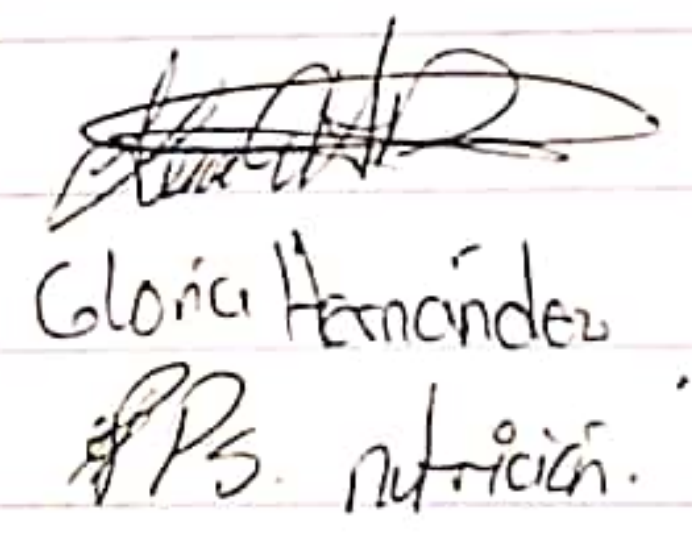 Gloria Hernández
PPs. nutrición.